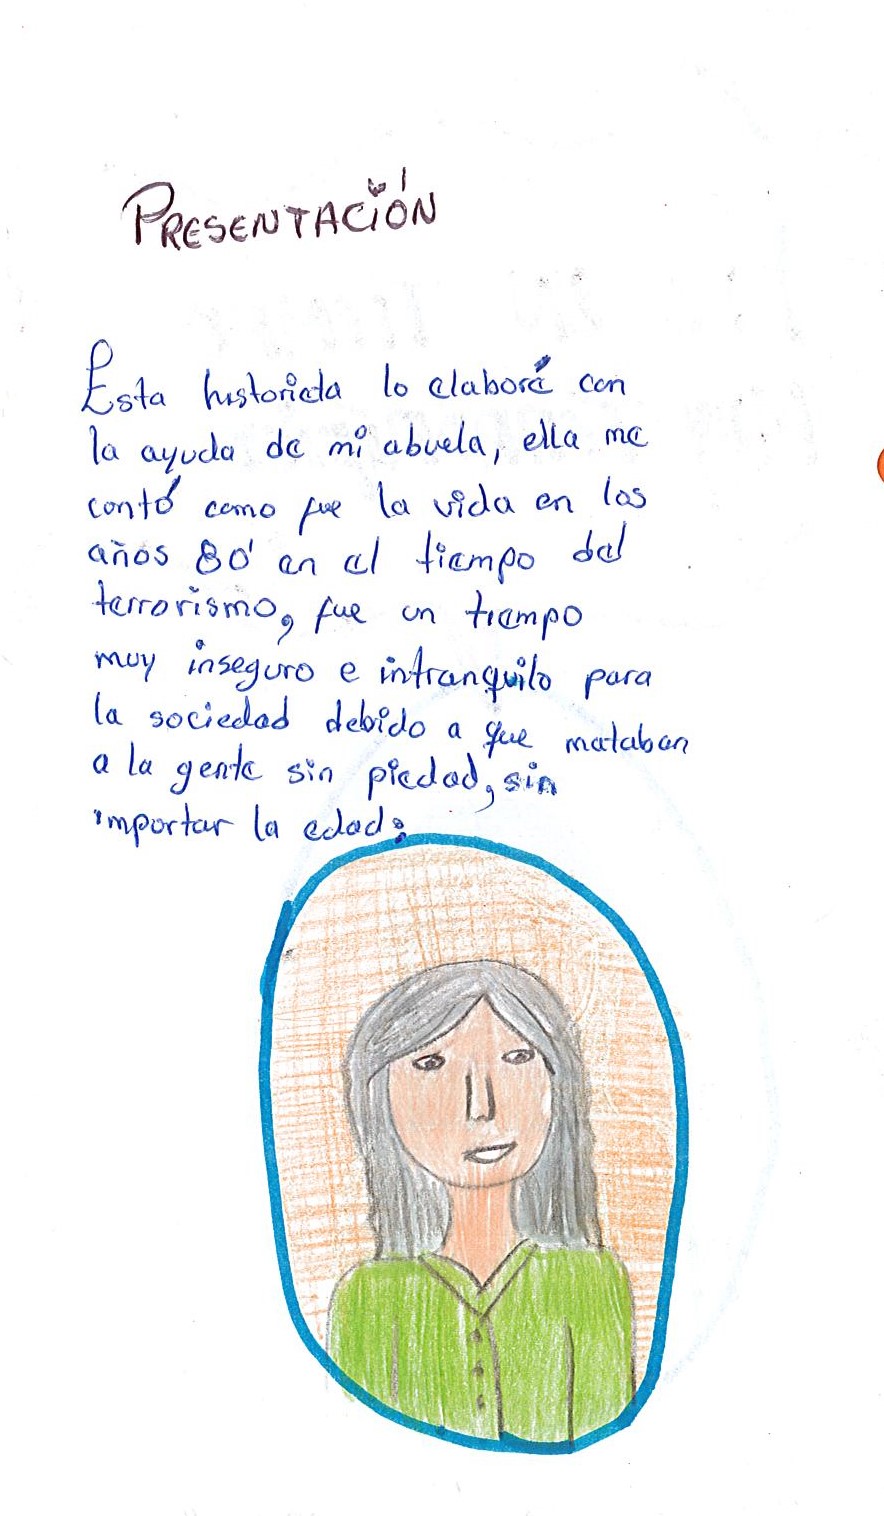 PRESENTACIÓN
Esta historieta lo elaboré con
la ayuda de mi abuela, ella me
contó como fue la vida en los
años 80' en el tiempo del
terrorismo, fue un tiempo
muy inseguro e intranquilo para
la sociedad debido a que mataban
a la gente sin piedad, sin
importar la edad.